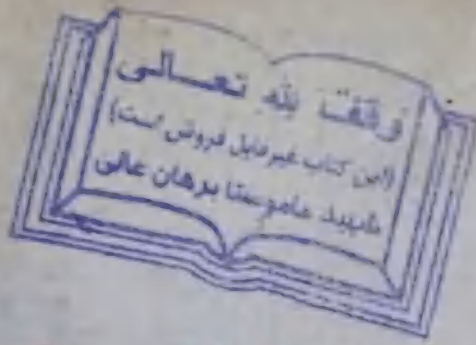 وقف لله تعالی
(این کتاب غیر قابل فروش است)
شهید ماموستا برهان عالی